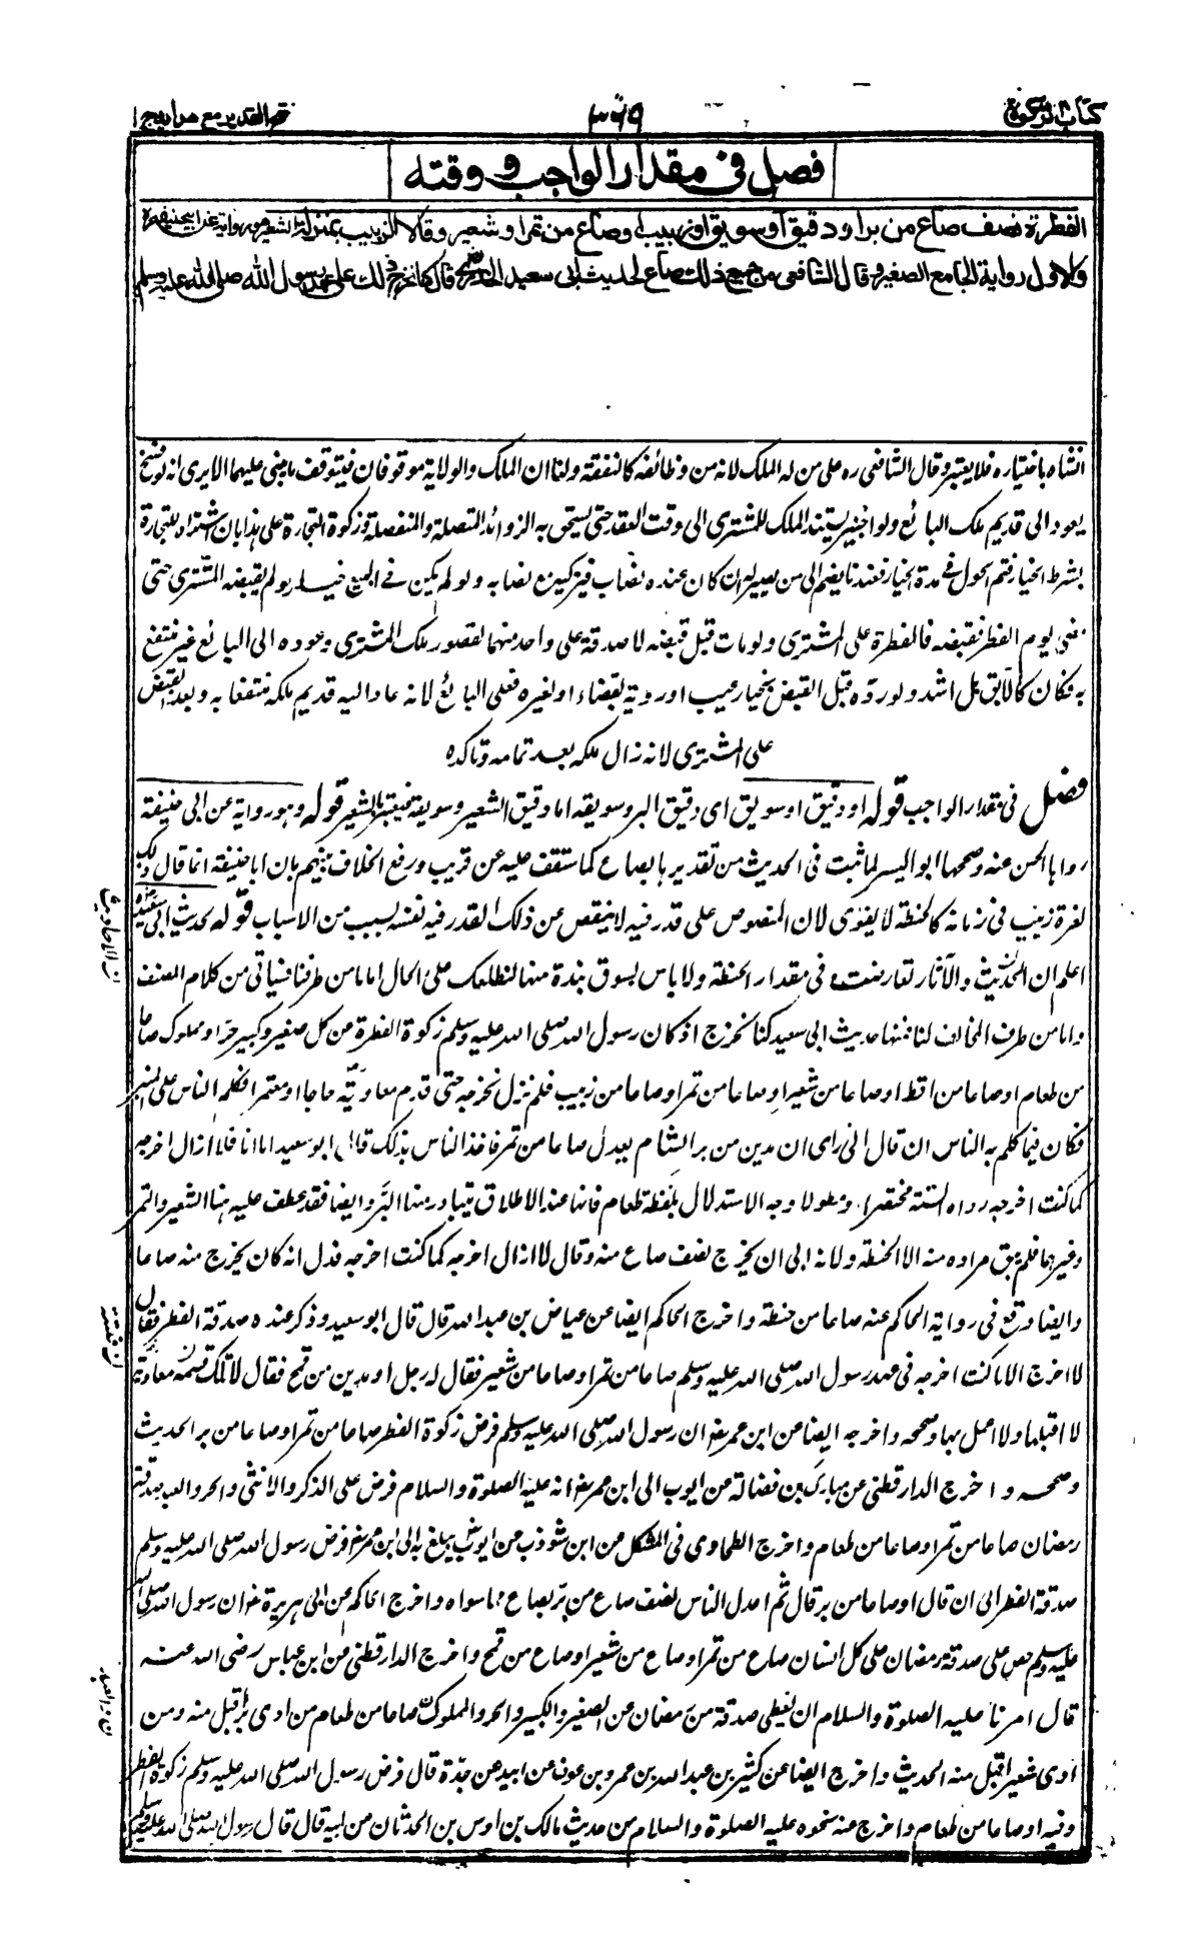 كتاب الزكوة
٣٦٩
فتح القدير مع هدايه ج ١
فصل فى مقدار الواجب ووقته
الفطرة نصف صاع من بر او دقيق او سويق او زبيب او صاع من تمر او شعير وقالا الزبيب بمنزلة الشعير وهو رواية عن ابيحنيفة
والاول رواية الجامع الصغير وقال الشافعى من جميع ذلك صاع لحديث ابى سعيد الخدرى قال كنا نخرج ذلك على عهد رسول الله صلى الله عليه وسلم
انشاه باختياره فلا يعتبر وقال الشافعى ره على من له الملك لانه من وظائفه كالنفقة ولنا ان الملك والولاية موقوفان فيتوقف ما يبنى عليهما الا يرى انه لو فسخ
يعود الى قديم ملك البائع ولو اجيز يستند الملك للمشترى الى وقت العقد حتى يستحق به الزوائد المتصلة والمنفصلة وزكوة التجارة على هذا بان اشتراه للتجارة
بشرط الخيار فتم الحول فى مدة الخيار فعندنا يضم الى من يصير له ان كان عنده نصاب فيزكيه مع نصابه ولو لم يكن فى البيع خيار ولم يقبضه المشترى حتى
مضى يوم الفطر فقبضه فالفطرة على المشترى ولو مات قبل قبضه لا صدقة على واحد منهما لقصور ملك المشترى وعوده الى البائع غير منتفع
به فكان كالآبق بل اشد ولو رده قبل القبض بخيار عيب او رؤية بقضاء او لغيره فعلى البائع لانه عاد اليه قديم ملكه منتفعا به وبعد القبض
على المشترى لانه زال ملكه بعد تمامه وتاكده
فصل فى مقدار الواجب قوله او دقيق او سويق اى دقيق البر وسويقه اما دقيق الشعير وسويقه فيعتبر بالشعير قوله وهو رواية عن ابى حنيفة
رواها الحسن عنه وصححها ابو اليسر لما ثبت فى الحديث من تقديرها بصاع كما ستقف عليه عن قريب ورفع الخلاف بينهم بان ابا حنيفة انما قال ذلك
لعزة زبيب فى زمانه كالحنطة لا يقوى لان المنصوص على قدر فيه لا ينقص عن ذلك القدر فيه نفسه بسبب من الاسباب قوله لحديث ابى سعيد
اعلم ان الحديث والآثار تعارضت فى مقدار الحنطة ولا باس بسوق نبذة منها لنطلعك على الحال اما ما من طرفنا فسياتى من كلام المصنف
واما من طرف المخالف لنا فمنها حديث ابى سعيد كنا نخرج اذ كان رسول الله صلى الله عليه وسلم زكوة الفطرة من كل صغير وكبير حر او مملوك صاعا
من طعام او صاعا من اقط او صاعا من شعير او صاعا من تمر او صاعا من زبيب فلم نزل نخرجه حتى قدم معاوية حاجا او معتمرا فكلم الناس على المنبر
فكان فيما كلم به الناس ان قال انى ارى ان مدين من بر الشام يعدل صاعا من تمر فاخذ الناس بذلك قال ابو سعيد اما انا فلا ازال اخرجه
كما كنت اخرجه رواه الستة مختصرا ومطولا وجه الاستدلال بلفظة طعام فانها عند الاطلاق يتبادر منها البر وايضا فقد عطف عليه هنا الشعير والتمر
وغيرهما فلم يبق مراده منه الا الحنطة ولانه ابى ان يخرج نصف صاع منه وقال لا ازال اخرجه كما كنت اخرجه فدل انه كان يخرج منه صاعا
وايضا وقع فى رواية الحاكم عنه صاعا من حنطة واخرج الحاكم ايضا عن عياض بن عبد الله قال قال ابو سعيد وذكر عنده صدقة الفطر فقال
لا اخرج الا ما كنت اخرجه فى عهد رسول الله صلى الله عليه وسلم صاعا من تمر او صاعا من شعير فقال له رجل او مدين من قمح فقال لا تلك قيمة معاوية
لا اقبلها ولا اعمل بها وصححه واخرجه ايضا عن ابن عمر رض ان رسول الله صلى الله عليه وسلم فرض زكوة الفطر صاعا من تمر او صاعا من بر الحديث
وصححه واخرج الدارقطنى عن مبارك بن فضالة عن ايوب الى ابن عمر رض انه عليه الصلوة والسلام فرض على الذكر والانثى والحر والعبد صدقة
رمضان صاعا من تمر او صاعا من طعام واخرج الطحاوى فى المشكل عن ابن شوذب عن ايوب يبلغ به الى ابن عمر رض فرض رسول الله صلى الله عليه وسلم
صدقة الفطر الى ان قال او صاعا من بر قال ثم اعدل الناس نصف صاع من بر بصاع مما سواه واخرج الحاكم عن ابى هريرة رض ان رسول الله صلى الله
عليه وسلم حض على صدقة رمضان على كل انسان صاع من تمر او صاع من شعير او صاع من قمح واخرج الدارقطنى عن ابن عباس رضى الله عنه
قال امرنا عليه الصلوة والسلام ان نعطى صدقة رمضان عن الصغير والكبير والحر والمملوك صاعا من طعام من ادى برا قبل منه ومن
ادى شعيرا قبل منه الحديث واخرج ايضا عن كثير بن عبد الله بن عمرو بن عوف عن ابيه عن جده قال فرض رسول الله صلى الله عليه وسلم زكوة الفطر
وفيه او صاعا من طعام واخرج عنه نحوه عليه الصلوة والسلام من حديث مالك بن اوس بن الحدثان عن ابيه قال قال رسول الله صلى الله عليه وسلم
ن الاحاديث